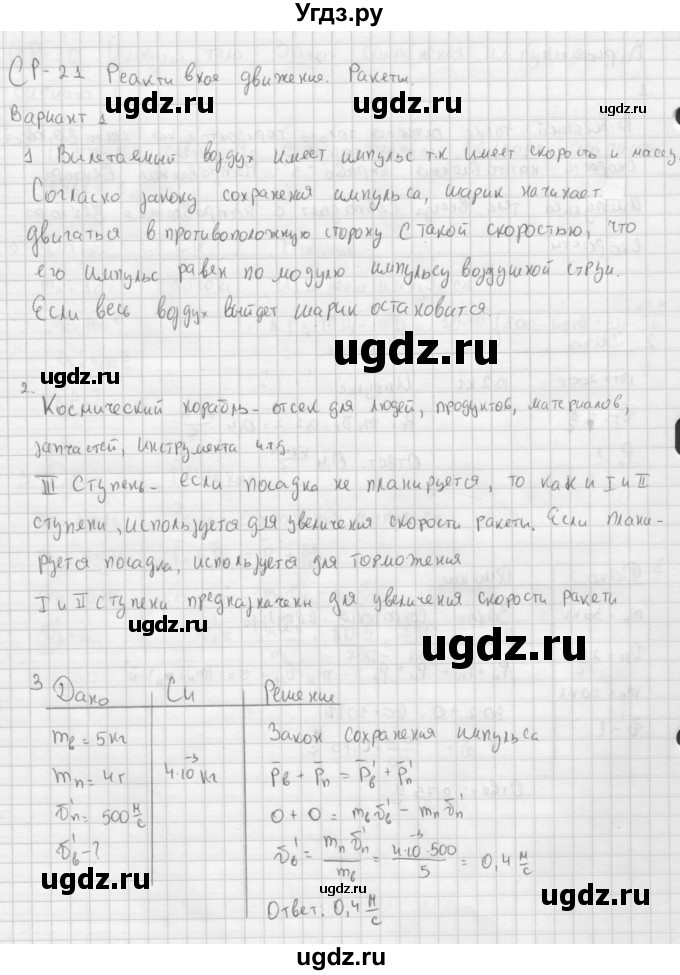 Угдз.ру
СР-21 Реактивное движение. Ракеты
ugdz.ru ugdz.ru
Вариант 1
1 Вылетаемый воздух имеет импульс т.к имеет скорость и массу.
Согласно закону сохранения импульса, шарик начинает
двигаться в противоположную сторону с такой скоростью, что
его импульс равен по модулю импульсу воздушной струи.
Если весь воздух выйдет шарик остановится.
ugdz.ru
ugdz.ru
2.
Космический корабль - отсек для людей, продуктов, материалов,
запчастей, инструмента и т.д.
III Ступень - если посадка не планируется, то как и I и II
ступени, используется для увеличения скорости ракеты. Если плани-
руется посадка, используется для торможения
I и II ступени предназначены для увеличения скорости ракеты
ugdz.ru
ugdz.ru
3 Дано Си Решение
mв = 5кг Закон сохранения импульса
mп = 4г 4·10⁻³кг p̄в + p̄п = p̄в' + p̄п'
ῡп' = 500 м/с 0 + 0 = mвῡв' - mпῡп'
ῡв' - ? ῡв' = mпῡп'/mв = 4·10⁻³·500/5 = 0,4 м/с
ugdz.ru
ugdz.ru
Ответ. 0,4 м/с
ugdz.ru
ugdz.ru